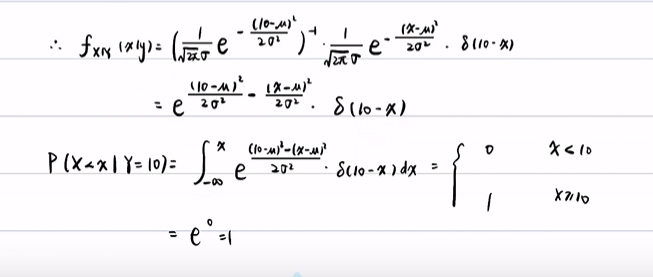 ∴ f_{X|Y}(x|y) = (1/(√(2π)σ) e^{-(10-μ)²/(2σ²)})^{-1} · 1/(√(2π)σ) e^{-(x-μ)²/(2σ²)} · δ(10-x)
= e^{(10-μ)²/(2σ²) - (x-μ)²/(2σ²)} · δ(10-x)
P(X<x|Y=10) = ∫_{-∞}^{x} e^{((10-μ)²-(x-μ)²)/(2σ²)} · δ(10-x) dx = { 0 x<10
1 x≥10
= e⁰ = 1